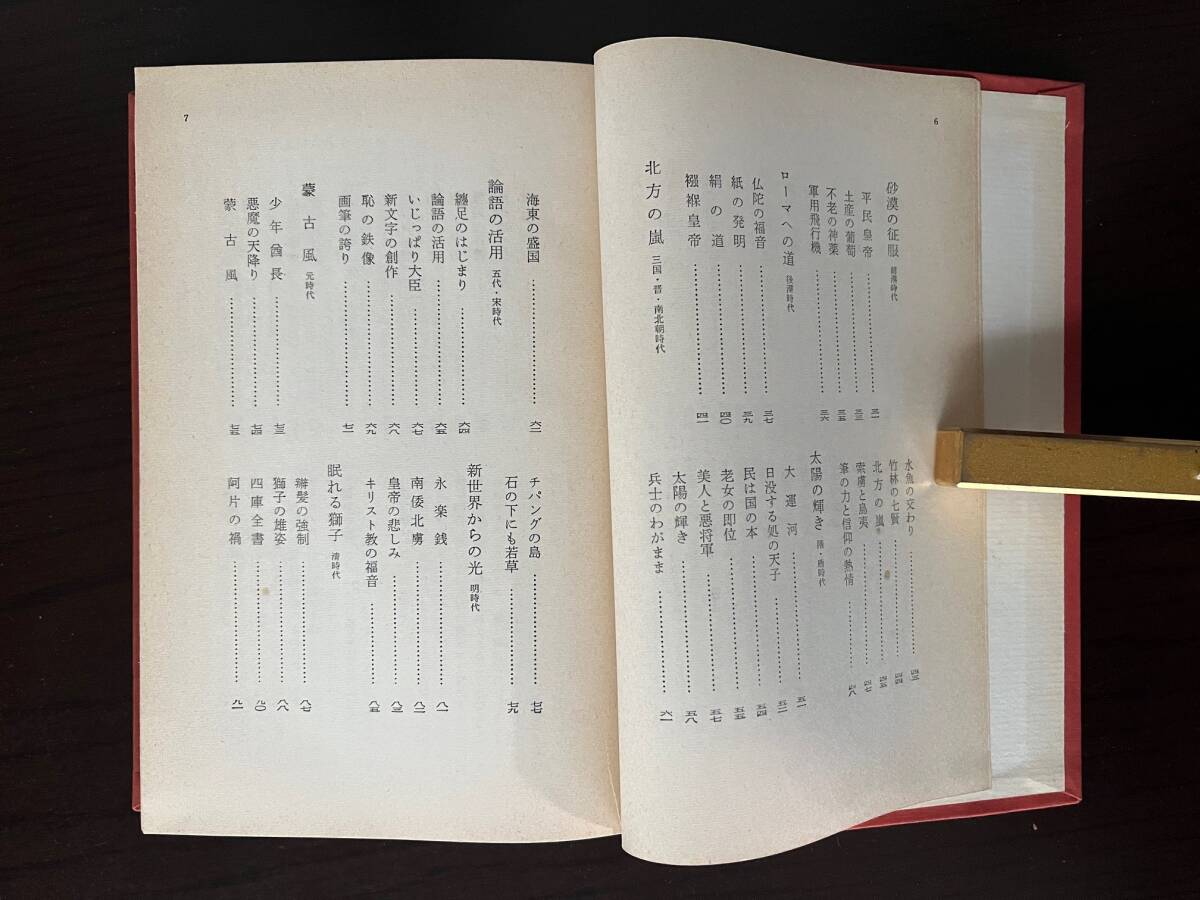 6
砂漠の征服 前漢時代
平民皇帝…………三一
土産の葡萄…………三三
不老の神薬…………三五
軍用飛行機…………三六
ローマへの道 後漢時代
仏陀の福音…………三七
紙の発明…………三九
絹の道…………四〇
襁褓皇帝…………四一
北方の嵐 三国・晋・南北朝時代
水魚の交わり…………四三
竹林の七賢…………四四
北方の嵐…………四五
索虜と島夷…………四七
筆の力と信仰の熱情…………四八
太陽の輝き 隋・唐時代
大運河…………五一
日没する処の天子…………五二
民は国の本…………五四
老女の即位…………五五
美人と悪将軍…………五七
太陽の輝き…………五八
兵士のわがまま…………六一
7
海東の盛国…………六二
論語の活用 五代・宋時代
纏足のはじまり…………六四
論語の活用…………六五
いじっぱり大臣…………六七
新文字の創作…………六八
恥の鉄像…………六九
画筆の誇り…………七一
蒙古風 元時代
少年酋長…………七三
悪魔の天降り…………七四
蒙古風…………七五
チパングの島…………七七
石の下にも若草…………七九
新世界からの光 明時代
永楽銭…………八一
南倭北虜…………八二
皇帝の悲しみ…………八三
キリスト教の福音…………八五
眠れる獅子 清時代
辮髪の強制…………八七
獅子の雄姿…………八八
四庫全書…………九〇
阿片の禍…………九一